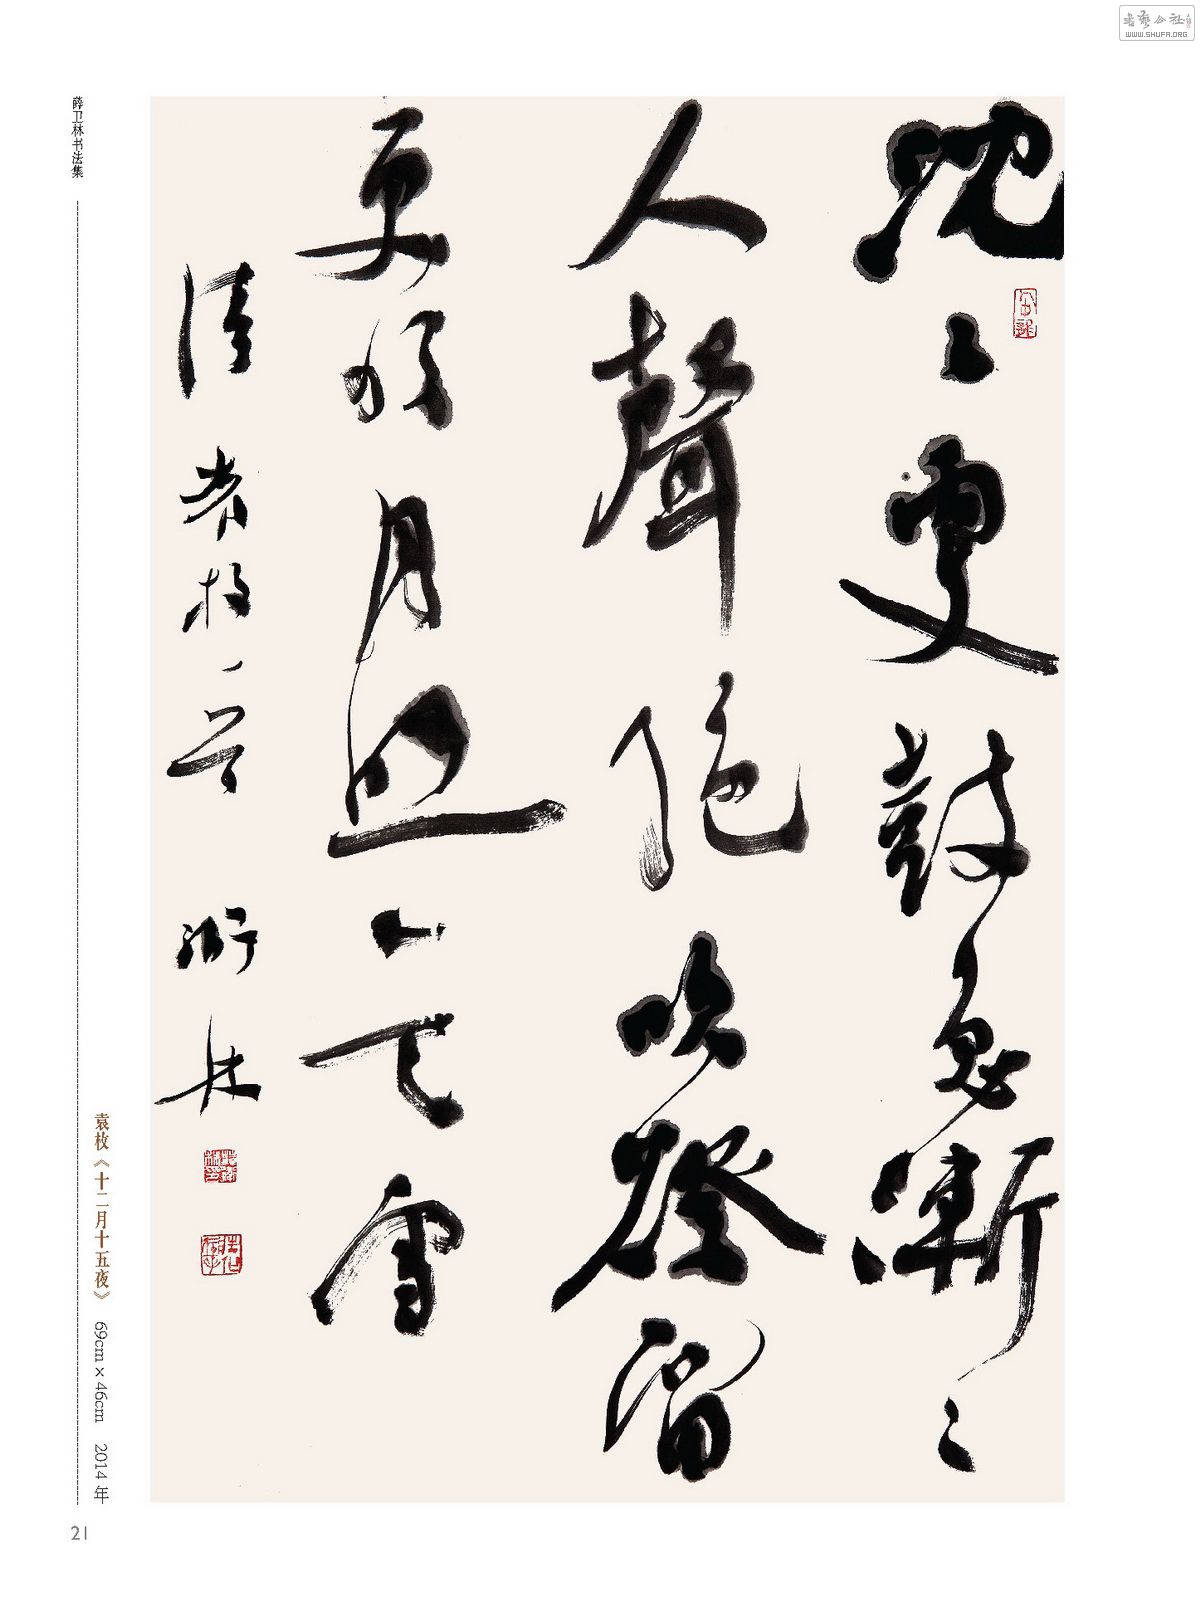 書藝公社
WWW.SHUFA.ORG
沈〻更鼓急漸〻
人聲絕吹燈窗
更明月照一天雪
清袁枚一首 衛林
薛卫林书法集
袁枚《十二月十五夜》 69cm×46cm 2014年
21